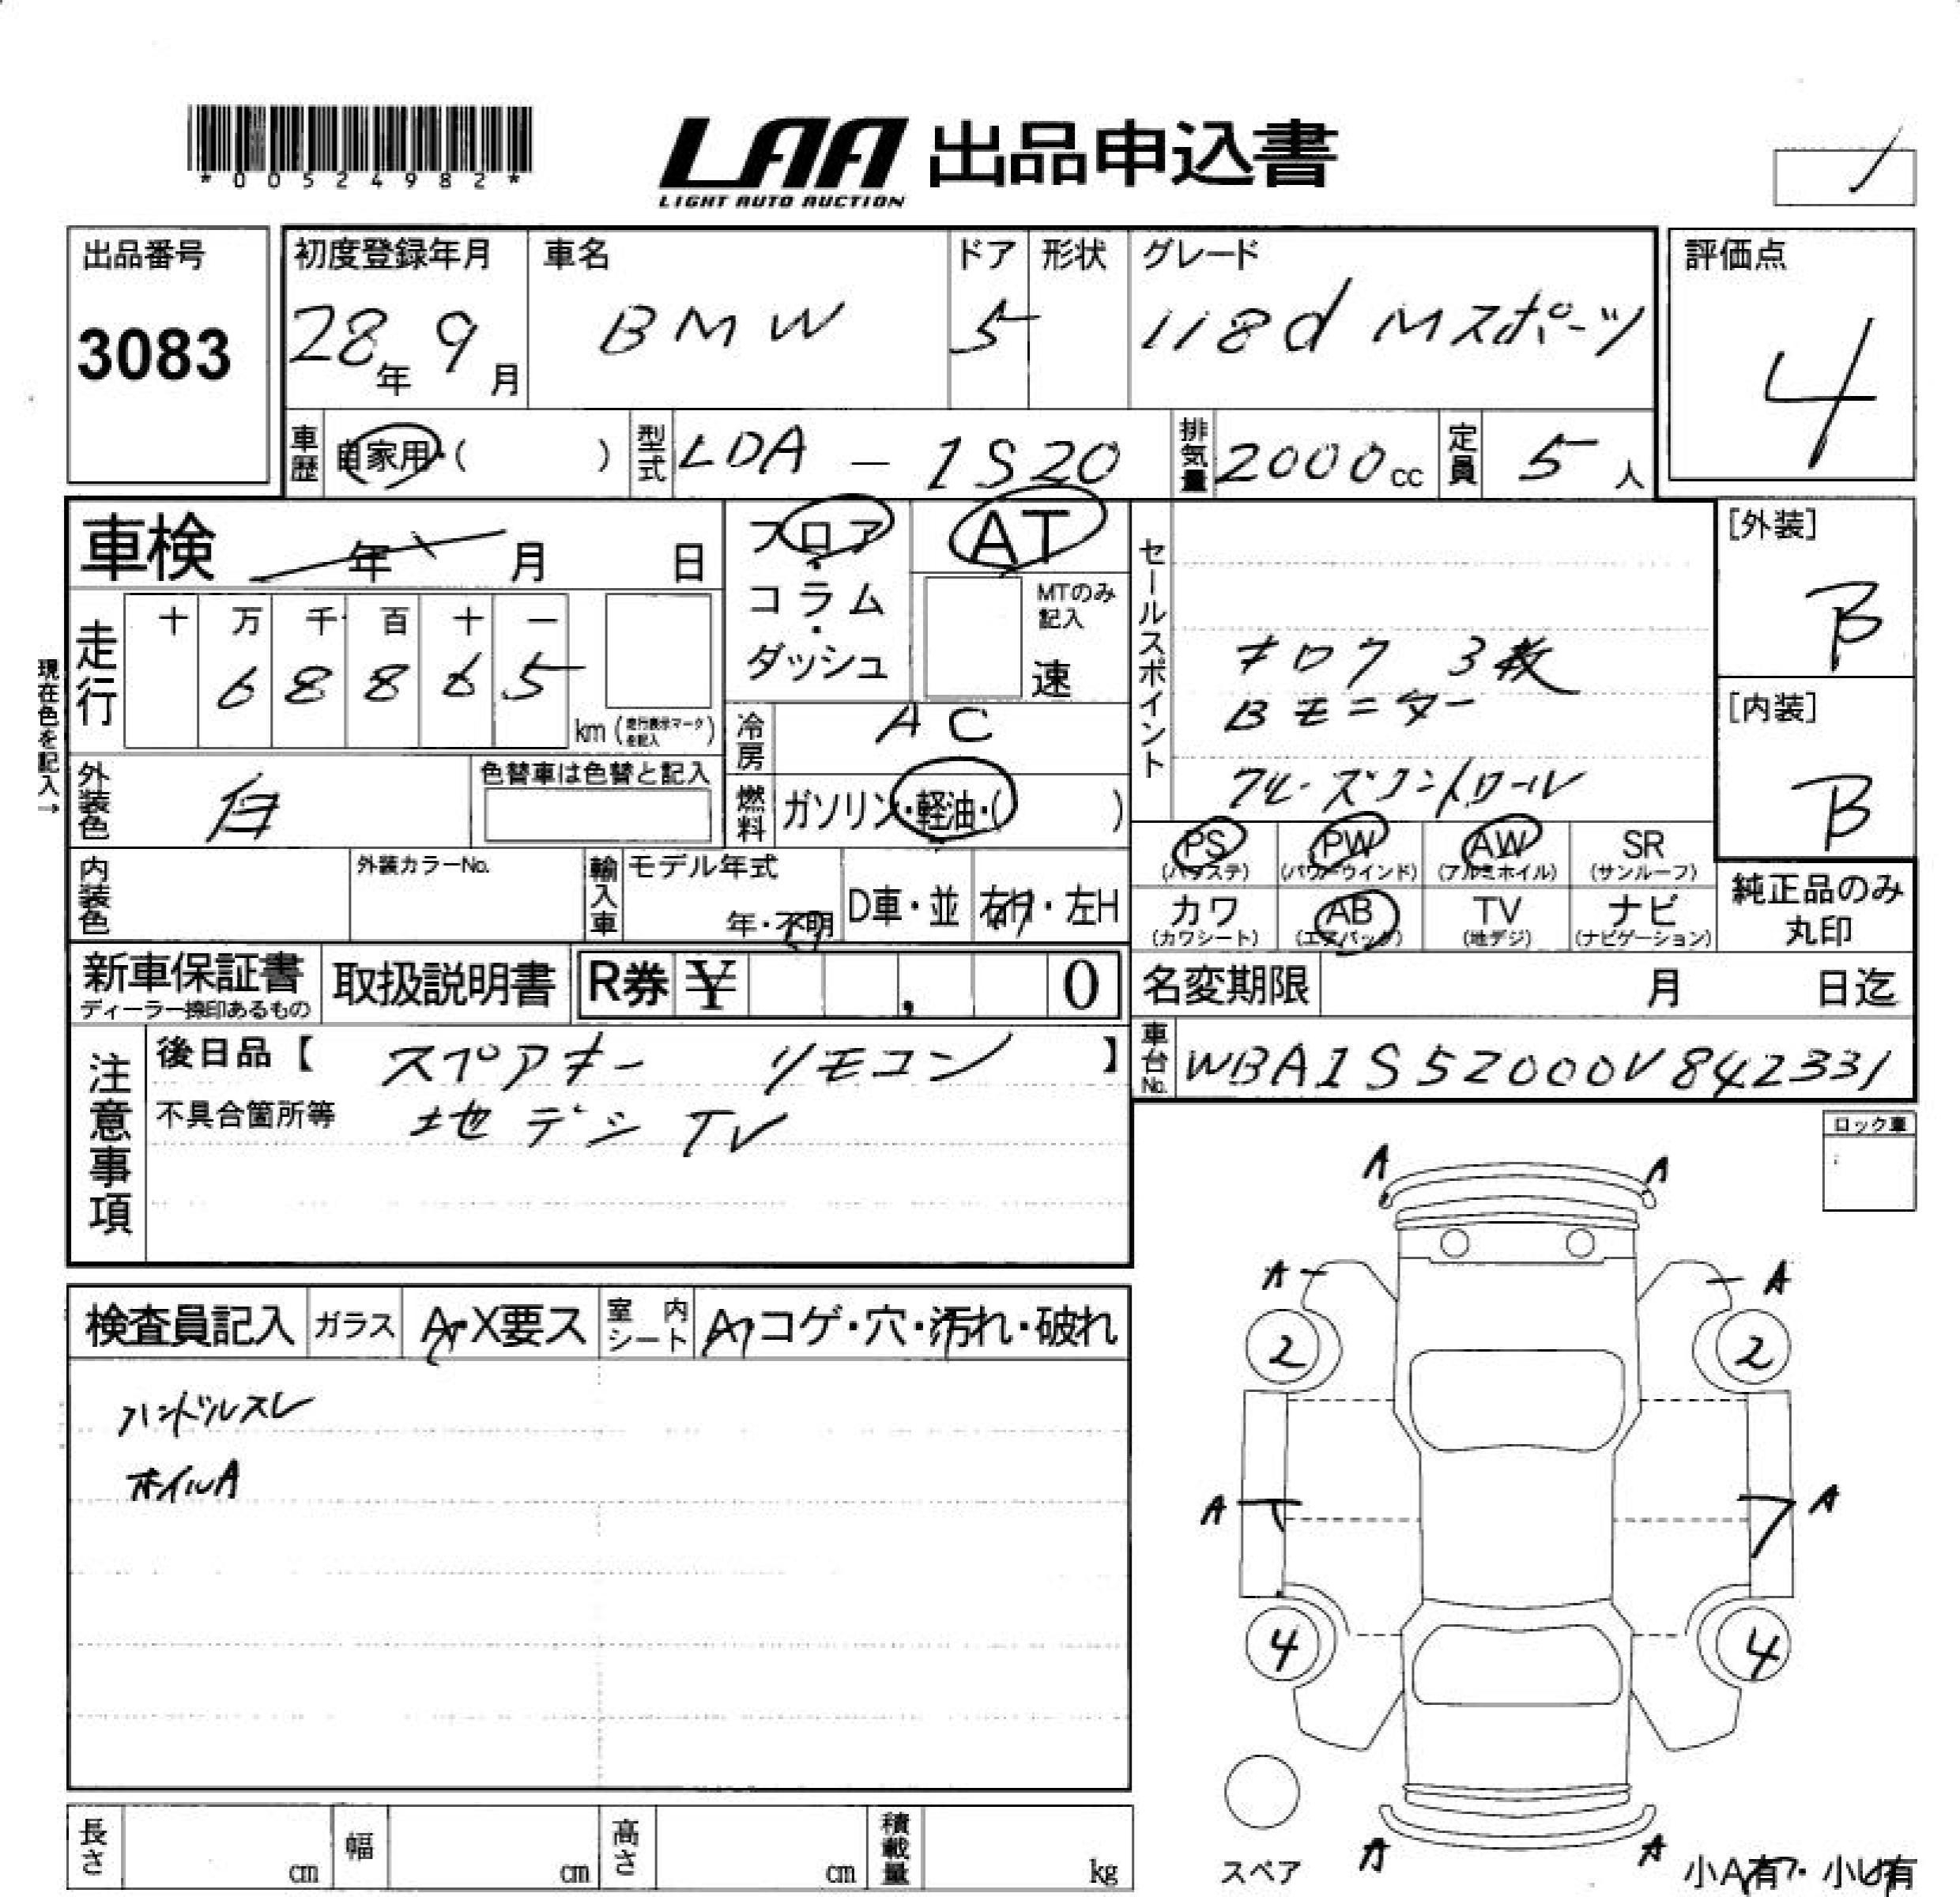 *00524982*
LAA 出品申込書
LIGHT AUTO AUCTION
出品番号 3083
初度登録年月 28年 9月
車名 BMW
ドア 5
形状
グレード 118d Mスポーツ
評価点 4
車歴 自家用・( )
型式 LDA - 1S20
排気量 2000cc
定員 5人
車検 年 月 日
フロア・コラム・ダッシュ
AT
MTのみ記入 速
セールスポイント
キロク 3枚
Bモニター
クルーズコントロール
[外装] B
[内装] B
現在色を記入→
走行 十 万 千 百 十 一
6 8 8 6 5
km (走行表示マークを記入)
冷房 AC
外装色 白
色替車は色替と記入
燃料 ガソリン・軽油・( )
PS (パワステ)
PW (パワーウインド)
AW (アルミホイル)
SR (サンルーフ)
内装色
外装カラーNo.
輸入車
モデル年式 年・不明
D車・並
右H・左H
カワ (カワシート)
AB (エアバック)
TV (地デジ)
ナビ (ナビゲーション)
純正品のみ丸印
新車保証書
ディーラー捺印あるもの
取扱説明書
R券 ¥ , 0
名変期限 月 日迄
車台No. WBA1S52000V842331
注意事項
後日品【 スペアキー リモコン 】
不具合箇所等 地デジTV
ロック車
検査員記入
ガラス A・X要ス
室内シート A・コゲ・穴・汚れ・破れ
ハンドルスレ
ホイルA
A A
A A
2 2
A A
4 4
A A
スペア
小A有・小U有
長さ cm
幅 cm
高さ cm
積載量 kg